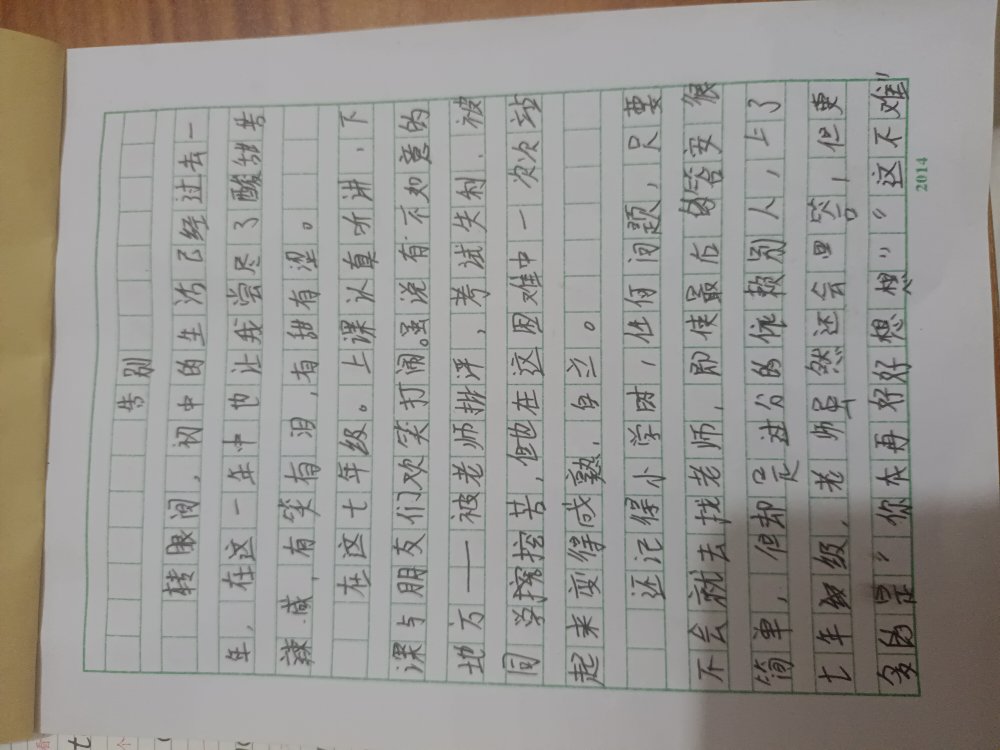 告别
转眼间，初中的生活已经过去一
年，在这一年中也让我尝尽了酸甜苦
辣咸，有笑有泪，有甜有涩。
在这七年级。上课认真听讲，下
课与朋友们欢笑打闹。虽说有不如意的
地方——被老师批评，考试失利，被
同学挖苦，但也在这困难中一次次站
起来变得成熟，自立。
还记得小学时，任何问题，只要
不会就去找老师，即使最后的答案很
简单，但却是过分的依赖别人，上了
七年级，老师虽然还会回答，但更
多的是“你在再好好想想”“这不难”
2014